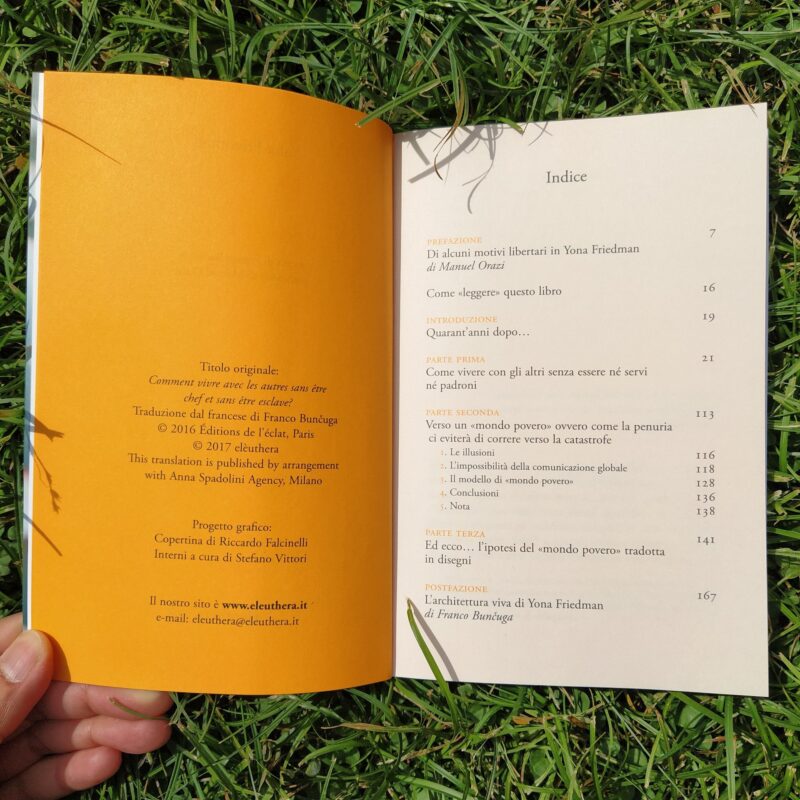 Titolo originale:
Comment vivre avec les autres sans être
chef et sans être esclave?
Traduzione dal francese di Franco Bunčuga
© 2016 Éditions de l'éclat, Paris
© 2017 elèuthera
This translation is published by arrangement
with Anna Spadolini Agency, Milano
Progetto grafico:
Copertina di Riccardo Falcinelli
Interni a cura di Stefano Vittori
Il nostro sito è www.eleuthera.it
e-mail: eleuthera@eleuthera.it
Indice
PREFAZIONE 7
Di alcuni motivi libertari in Yona Friedman
di Manuel Orazi
Come «leggere» questo libro 16
INTRODUZIONE 19
Quarant'anni dopo…
PARTE PRIMA 21
Come vivere con gli altri senza essere né servi
né padroni
PARTE SECONDA 113
Verso un «mondo povero» ovvero come la penuria
ci eviterà di correre verso la catastrofe
1. Le illusioni 116
2. L'impossibilità della comunicazione globale 118
3. Il modello di «mondo povero» 128
4. Conclusioni 136
5. Nota 138
PARTE TERZA 141
Ed ecco… l'ipotesi del «mondo povero» tradotta
in disegni
POSTFAZIONE 167
L'architettura viva di Yona Friedman
di Franco Bunčuga